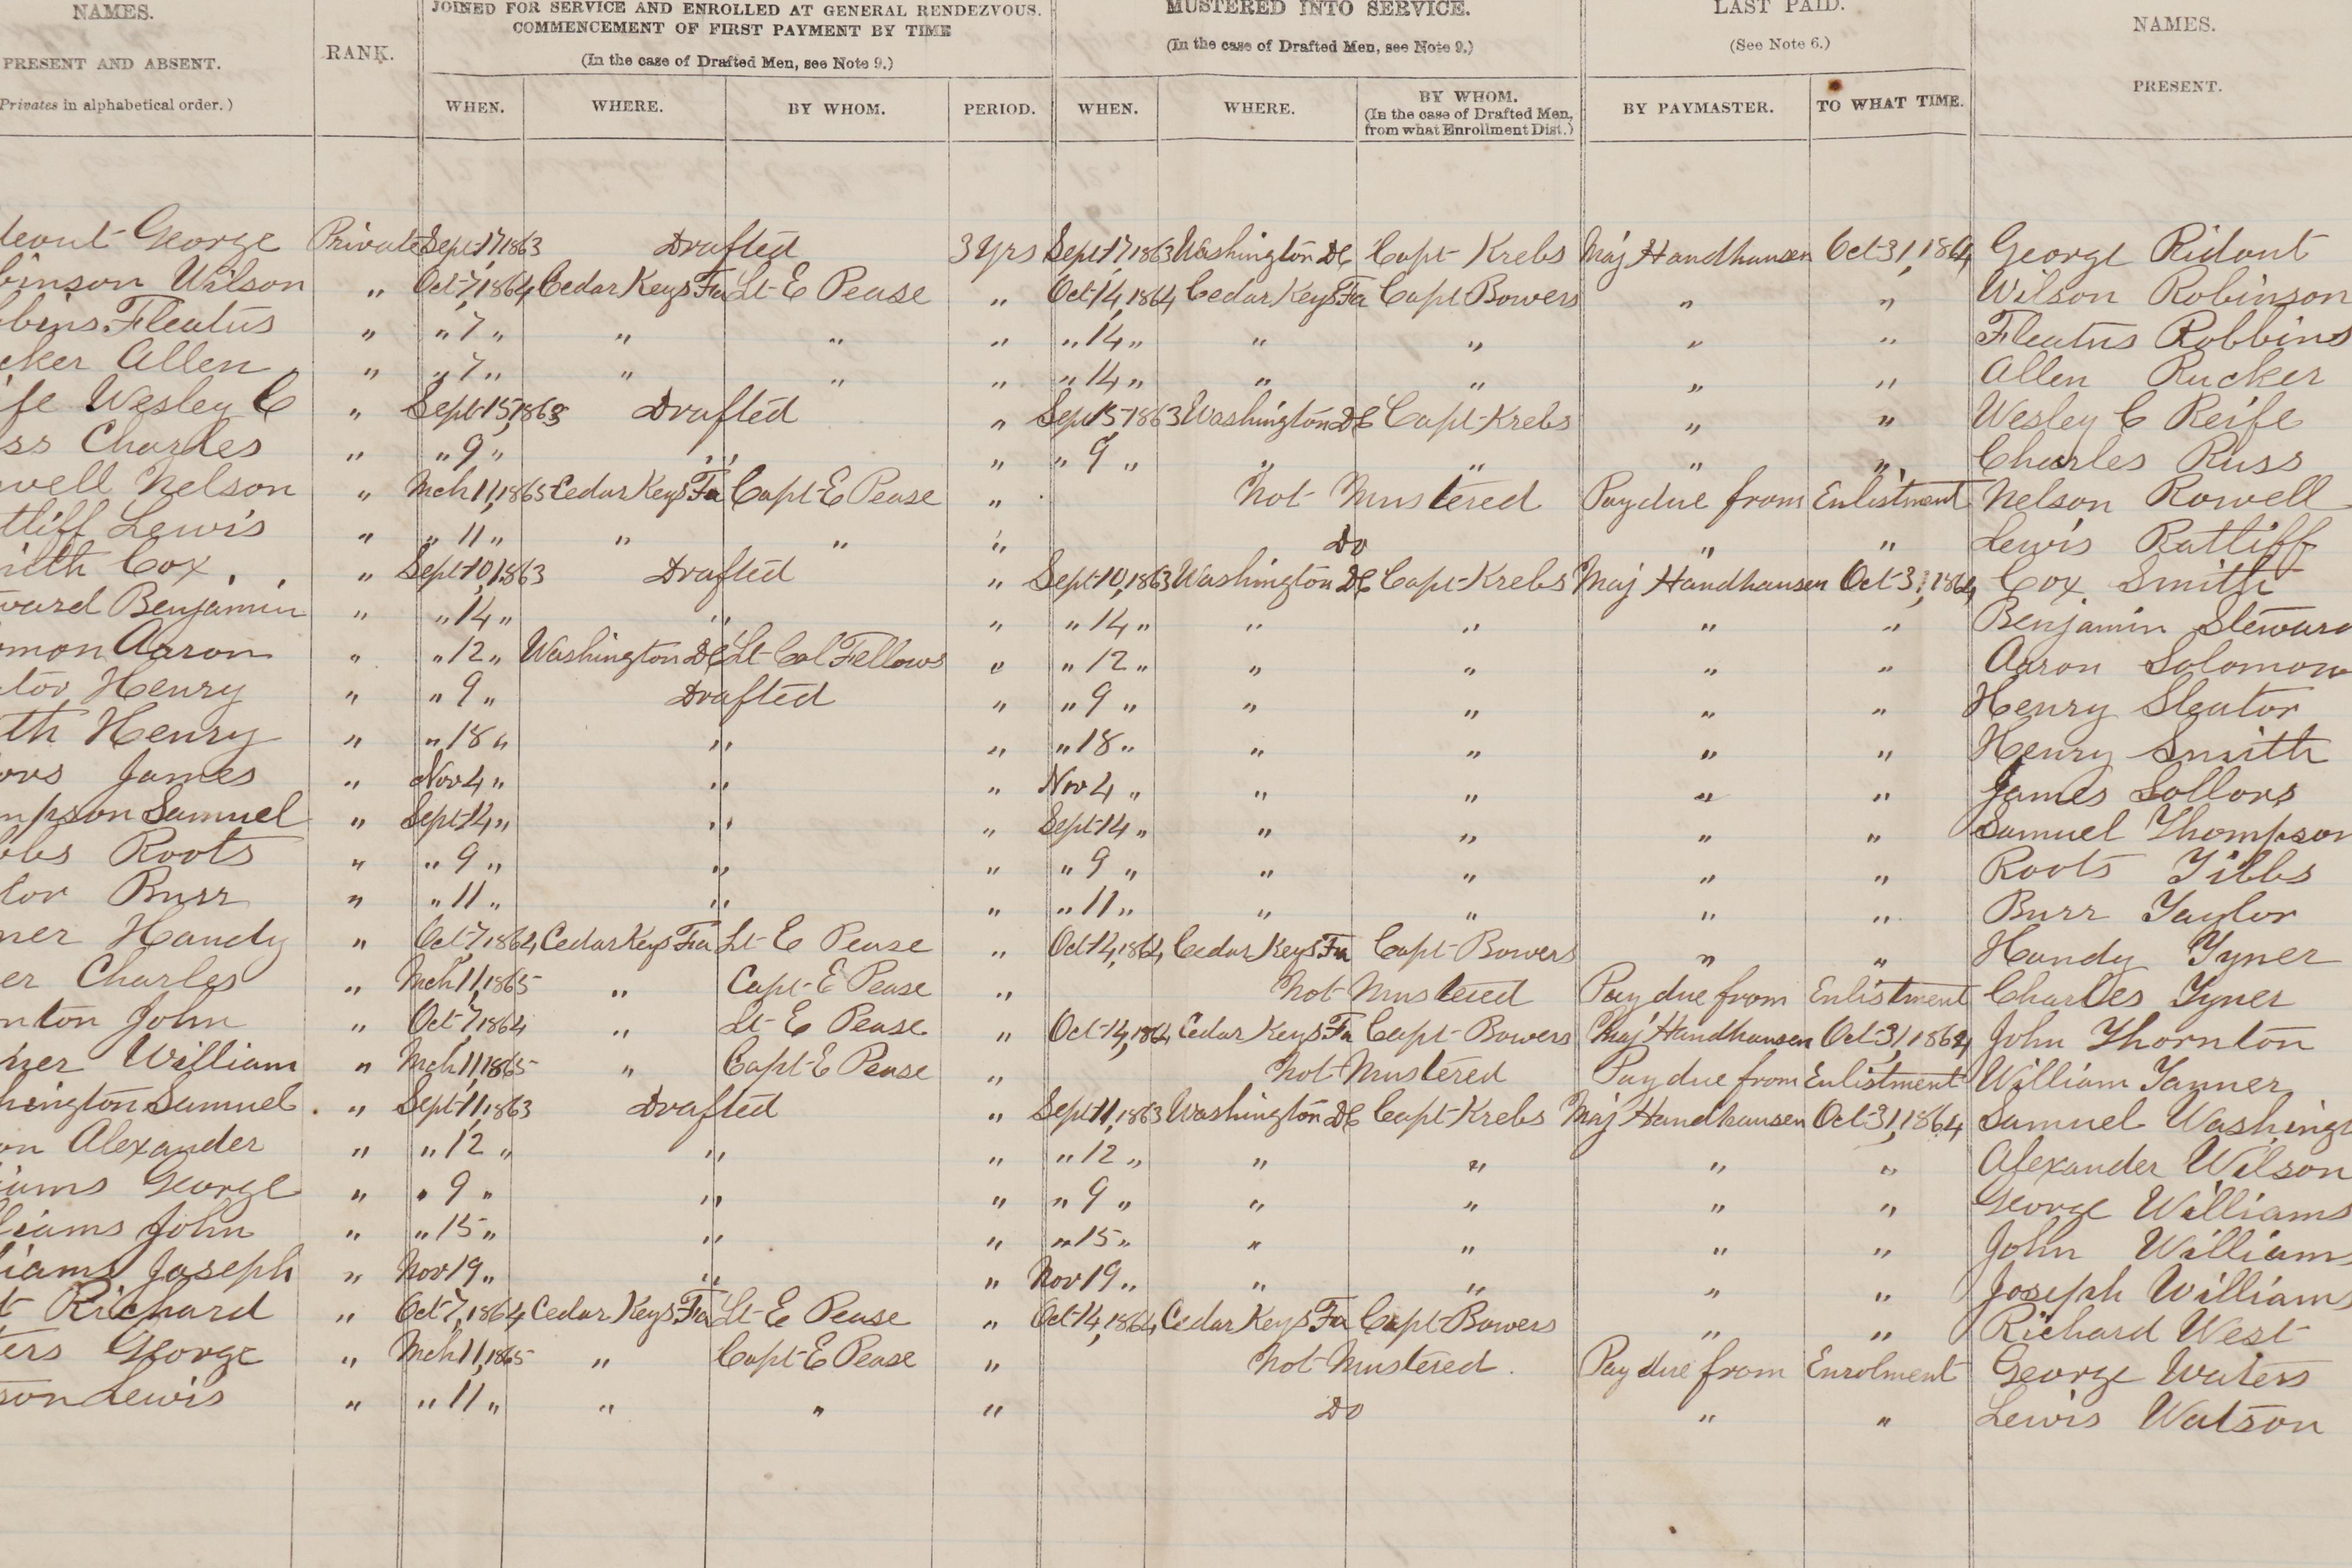 NAMES. JOINED FOR SERVICE AND ENROLLED AT GENERAL RENDEZVOUS. MUSTERED INTO SERVICE. LAST PAID. NAMES.
COMMENCEMENT OF FIRST PAYMENT BY TIME
PRESENT AND ABSENT. RANK. (In the case of Drafted Men, see Note 9.) (In the case of Drafted Men, see Note 9.) (See Note 6.) PRESENT.
Privates in alphabetical order.) WHEN. WHERE. BY WHOM. PERIOD. WHEN. WHERE. BY WHOM. (In the case of Drafted Men, from what Enrollment Dist.) BY PAYMASTER. TO WHAT TIME.
deout George Private Sept 17, 1863 Drafted 3 Yrs Sept 17 1863 Washington DC Capt Krebs Maj Handhausen Oct 31, 1864 George Ridout
binson Wilson " Oct 7, 1864 Cedar Keys Fa Lt E Pease " Oct 14, 1864 Cedar Keys Fa Capt Bowers " " Wilson Robinson
bbins Fleatus " " 7 " " " " " 14 " " " " " Fleatus Robbins
cker Allen " " 7 " " " " " 14 " " " " " Allen Rucker
ife Wesley C " Sept 15, 1863 Drafted " Sept 15 1863 Washington DC Capt Krebs " " Wesley C Reife
ss Charles " " 9 " " " " 9 " " " " " Charles Russ
well Nelson " Mch 11, 1865 Cedar Keys Fa Capt E Pease " Not Mustered Pay due from Enlistment Nelson Rowell
tliff Lewis " " 11 " " " " Do " " Lewis Ratliff
ith Cox " Sept 10, 1863 Drafted " Sept 10, 1863 Washington DC Capt Krebs Maj Handhausen Oct 31, 1864 Cox Smith
ward Benjamin " " 14 " " " " 14 " " " " " Benjamin Steward
omon Aaron " " 12 " Washington DC Lt Col Fellows " " 12 " " " " " Aaron Solomon
tor Henry " " 9 " Drafted " " 9 " " " " " Henry Sleator
th Henry " " 18 " " " " 18 " " " " " Henry Smith
ors James " Nov 4 " " " Nov 4 " " " " " James Sollors
mpson Samuel " Sept 14 " " " Sept 14 " " " " " Samuel Thompson
bbs Roots " " 9 " " " " 9 " " " " " Roots Tibbs
lor Burr " " 11 " " " " 11 " " " " " Burr Taylor
ner Handy " Oct 7, 1864 Cedar Keys Fa Lt E Pease " Oct 14, 1864 Cedar Keys Fa Capt Bowers " " Handy Tyner
er Charles " Mch 11, 1865 " Capt E Pease " Not Mustered Pay due from Enlistment Charles Tyner
nton John " Oct 7, 1864 " Lt E Pease " Oct 14, 1864 Cedar Keys Fa Capt Bowers Maj Handhausen Oct 31, 1864 John Thornton
ner William " Mch 11, 1865 " Capt E Pease " Not Mustered Pay due from Enlistment William Tanner
hington Samuel " Sept 11, 1863 Drafted " Sept 11, 1863 Washington DC Capt Krebs Maj Handhausen Oct 31, 1864 Samuel Washingt
on Alexander " " 12 " " " " 12 " " " " " Alexander Wilson
iams George " " 9 " " " " 9 " " " " " George Williams
liams John " " 15 " " " " 15 " " " " " John Williams
iams Joseph " Nov 19 " " " Nov 19 " " " " " Joseph Williams
t Richard " Oct 7, 1864 Cedar Keys Fa Lt E Pease " Oct 14, 1864 Cedar Keys Fa Capt Bowers " " Richard West
ters George " Mch 11, 1865 " Capt E Pease " Not Mustered Pay due from Enrolment George Waters
son Lewis " " 11 " " " " Do " " Lewis Watson